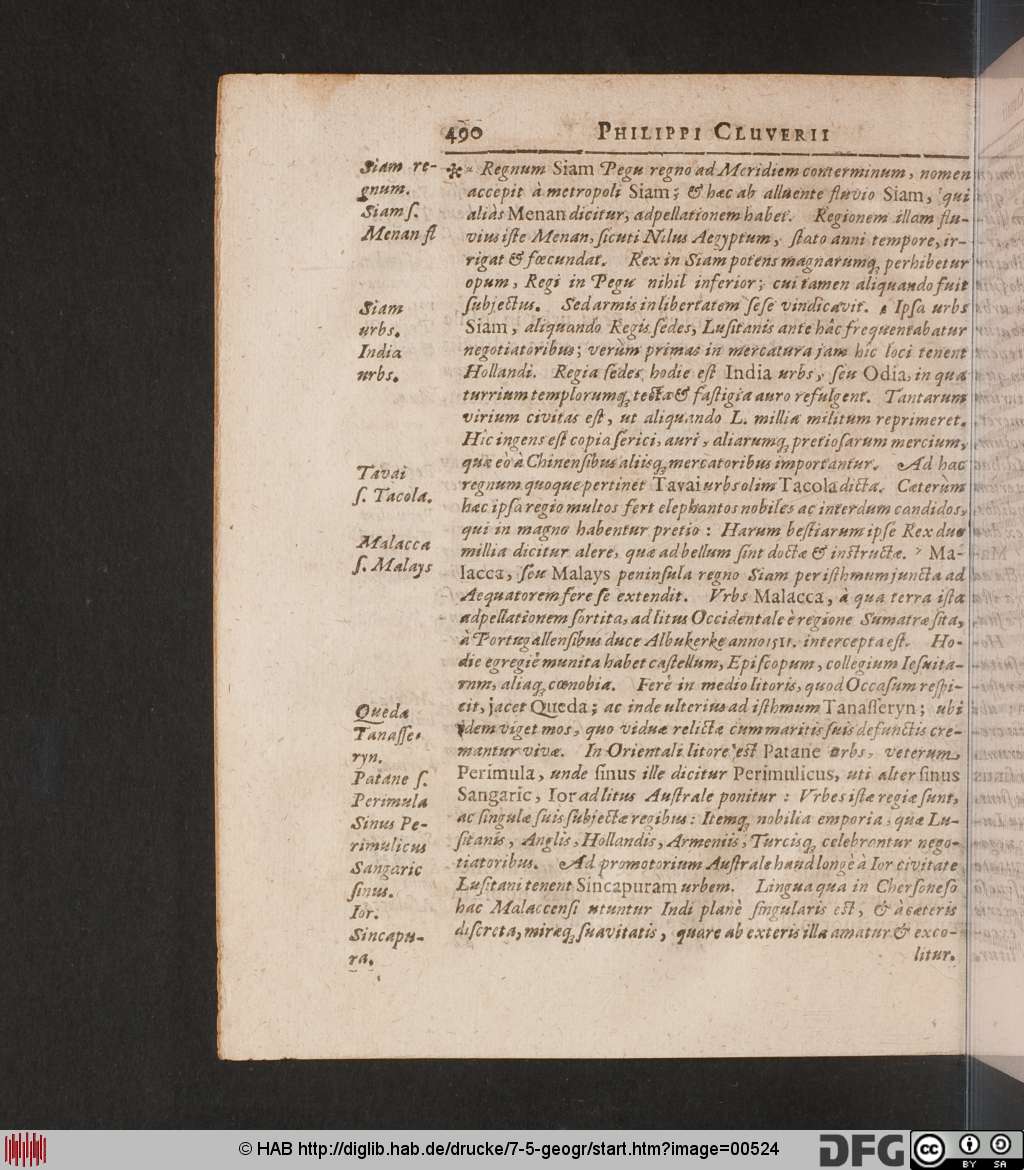 490 PHILIPPI CLUVERII
Siam re-
gnum.
Siam f.
Menan fl
Siam
urbs.
India
urbs.
Tavai
ſ. Tacola.
Malacca
ſ. Malays
Queda
Tanaſſe-
ryn.
Patane ſ.
Perimula
Sinus Pe-
rimulicus
Sangaric
ſinus.
Ior.
Sincapu-
ra.
* Regnum Siam Pegu regno ad Meridiem conterminum, nomen
accepit à metropoli Siam; & hæc ab alluente fluvio Siam, qui
aliàs Menan dicitur, adpellationem habet. Regionem illam flu-
vius iſte Menan, ſicuti Nilus Aegyptum, ſtato anni tempore, ir-
rigat & fœcundat. Rex in Siam potens magnarumq́; perhibetur
opum, Regi in Pegu nihil inferior; cui tamen aliquando fuit
ſubjectus. Sed armis in libertatem ſeſe vindicavit. Ipſa urbs
Siam, aliquando Regis ſedes, Luſitanis ante hâc frequentabatur
negotiatoribus; verùm primas in mercatura jam hîc loci tenent
Hollandi. Regia ſedes hodie eſt India urbs, ſeu Odia, in qua
turrium templorumq́; tecta & faſtigia auro refulgent. Tantarum
virium civitas eſt, ut aliquando L. millia militum reprimeret.
Hîc ingens eſt copia ſerici, auri, aliarumq́; pretioſarum mercium,
quæ eò à Chinenſibus aliisq́; mercatoribus importantur. Ad hac
regnum quoque pertinet Tavai urbs olim Tacola dicta. Cæterùm
hæc ipſa regio multos fert elephantos nobiles ac interdum candidos,
qui in magno habentur pretio: Harum beſtiarum ipſe Rex duo
millia dicitur alere, quæ ad bellum ſint doctæ & inſtructæ. Ma-
lacca, ſeu Malays peninſula regno Siam per iſthmum juncta ad
Aequatorem fere ſe extendit. Vrbs Malacca, à qua terra iſta
adpellationem ſortita, ad litus Occidentale è regione Sumatræ ſita,
à Portugallenſibus duce Albukerke anno 1511. intercepta eſt. Ho-
die egregiè munita habet caſtellum, Epiſcopum, collegium Ieſuita-
rum, aliaq́; cœnobia. Ferè in medio litoris, quod Occaſum reſpi-
cit, jacet Queda; ac inde ulterius ad iſthmum Tanaſſeryn; ubi
idem viget mos, quo viduæ relictæ cum maritis ſuis defunctis cre-
mantur vivæ. In Orientali litore eſt Patane urbs, veterum
Perimula, unde ſinus ille dicitur Perimulicus, uti alter ſinus
Sangaric, Ior ad litus Auſtrale ponitur: Vrbes iſtæ regiæ ſunt,
ac ſingulæ ſuis ſubjectæ regibus: Itemq́; nobilia emporia, quæ Lu-
ſitanis, Anglis, Hollandis, Armeniis, Turcisq́; celebrantur nego-
tiatoribus. Ad promotorium Auſtrale haud longè à Ior civitate
Luſitani tenent Sincapuram urbem. Lingua qua in Cherſoneſo
hac Malaccenſi utuntur Indi planè ſingularis eſt, & à cæteris
diſcreta, miræq́; ſuavitatis, quare ab exteris illa amatur & exco-
litur.
© HAB http://diglib.hab.de/drucke/7-5-geogr/start.htm?image=00524
DFG
cc BY SA